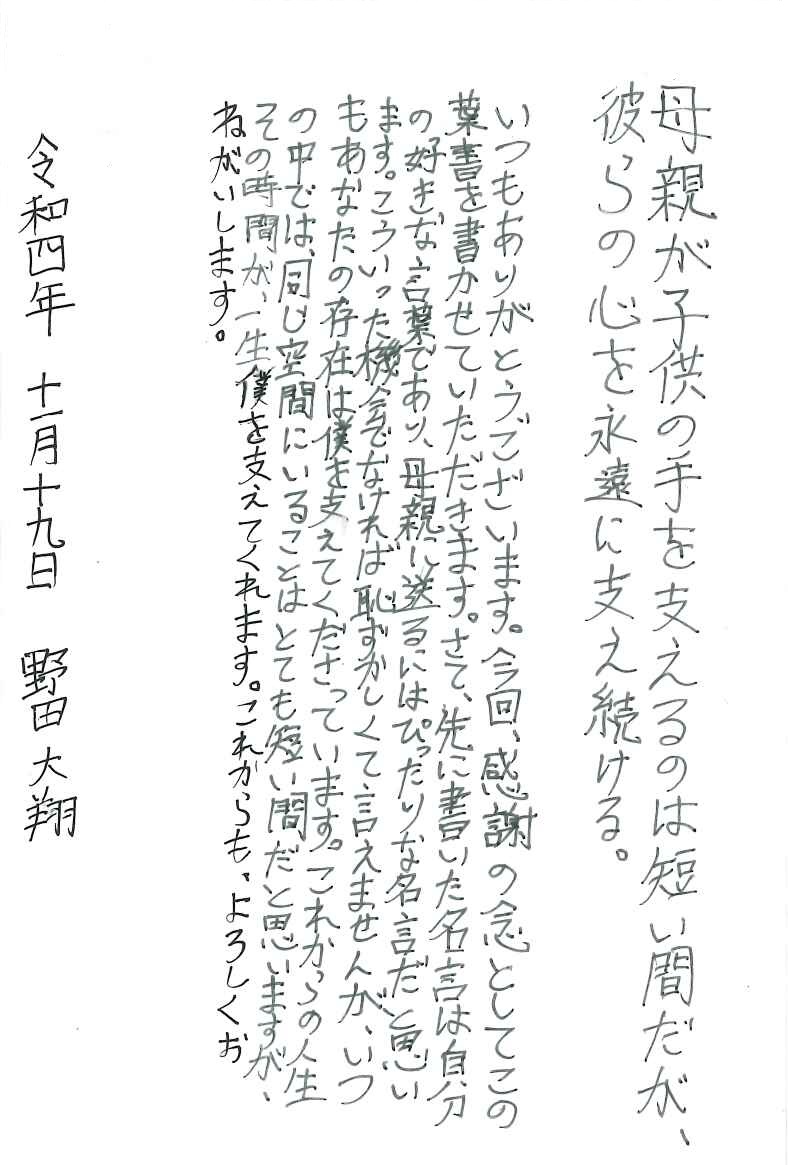 母親が子供の手を支えるのは短い間だが、
彼らの心を永遠に支え続ける。
いつもありがとうございます。今回、感謝の念としてこの
葉書を書かせていただきます。さて、先に書いた名言は自分
の好きな言葉であり、母親に送るにはぴったりな名言だと思い
ます。こういった機会でなければ恥ずかしくて言えませんが、いつ
もあなたの存在は僕を支えてくださっています。これからの人生
の中では、同じ空間にいることはとても短い間だと思いますが、
その時間が、一生僕を支えてくれます。これからも、よろしくお
ねがいします。
令和四年 十一月十九日 野田大翔